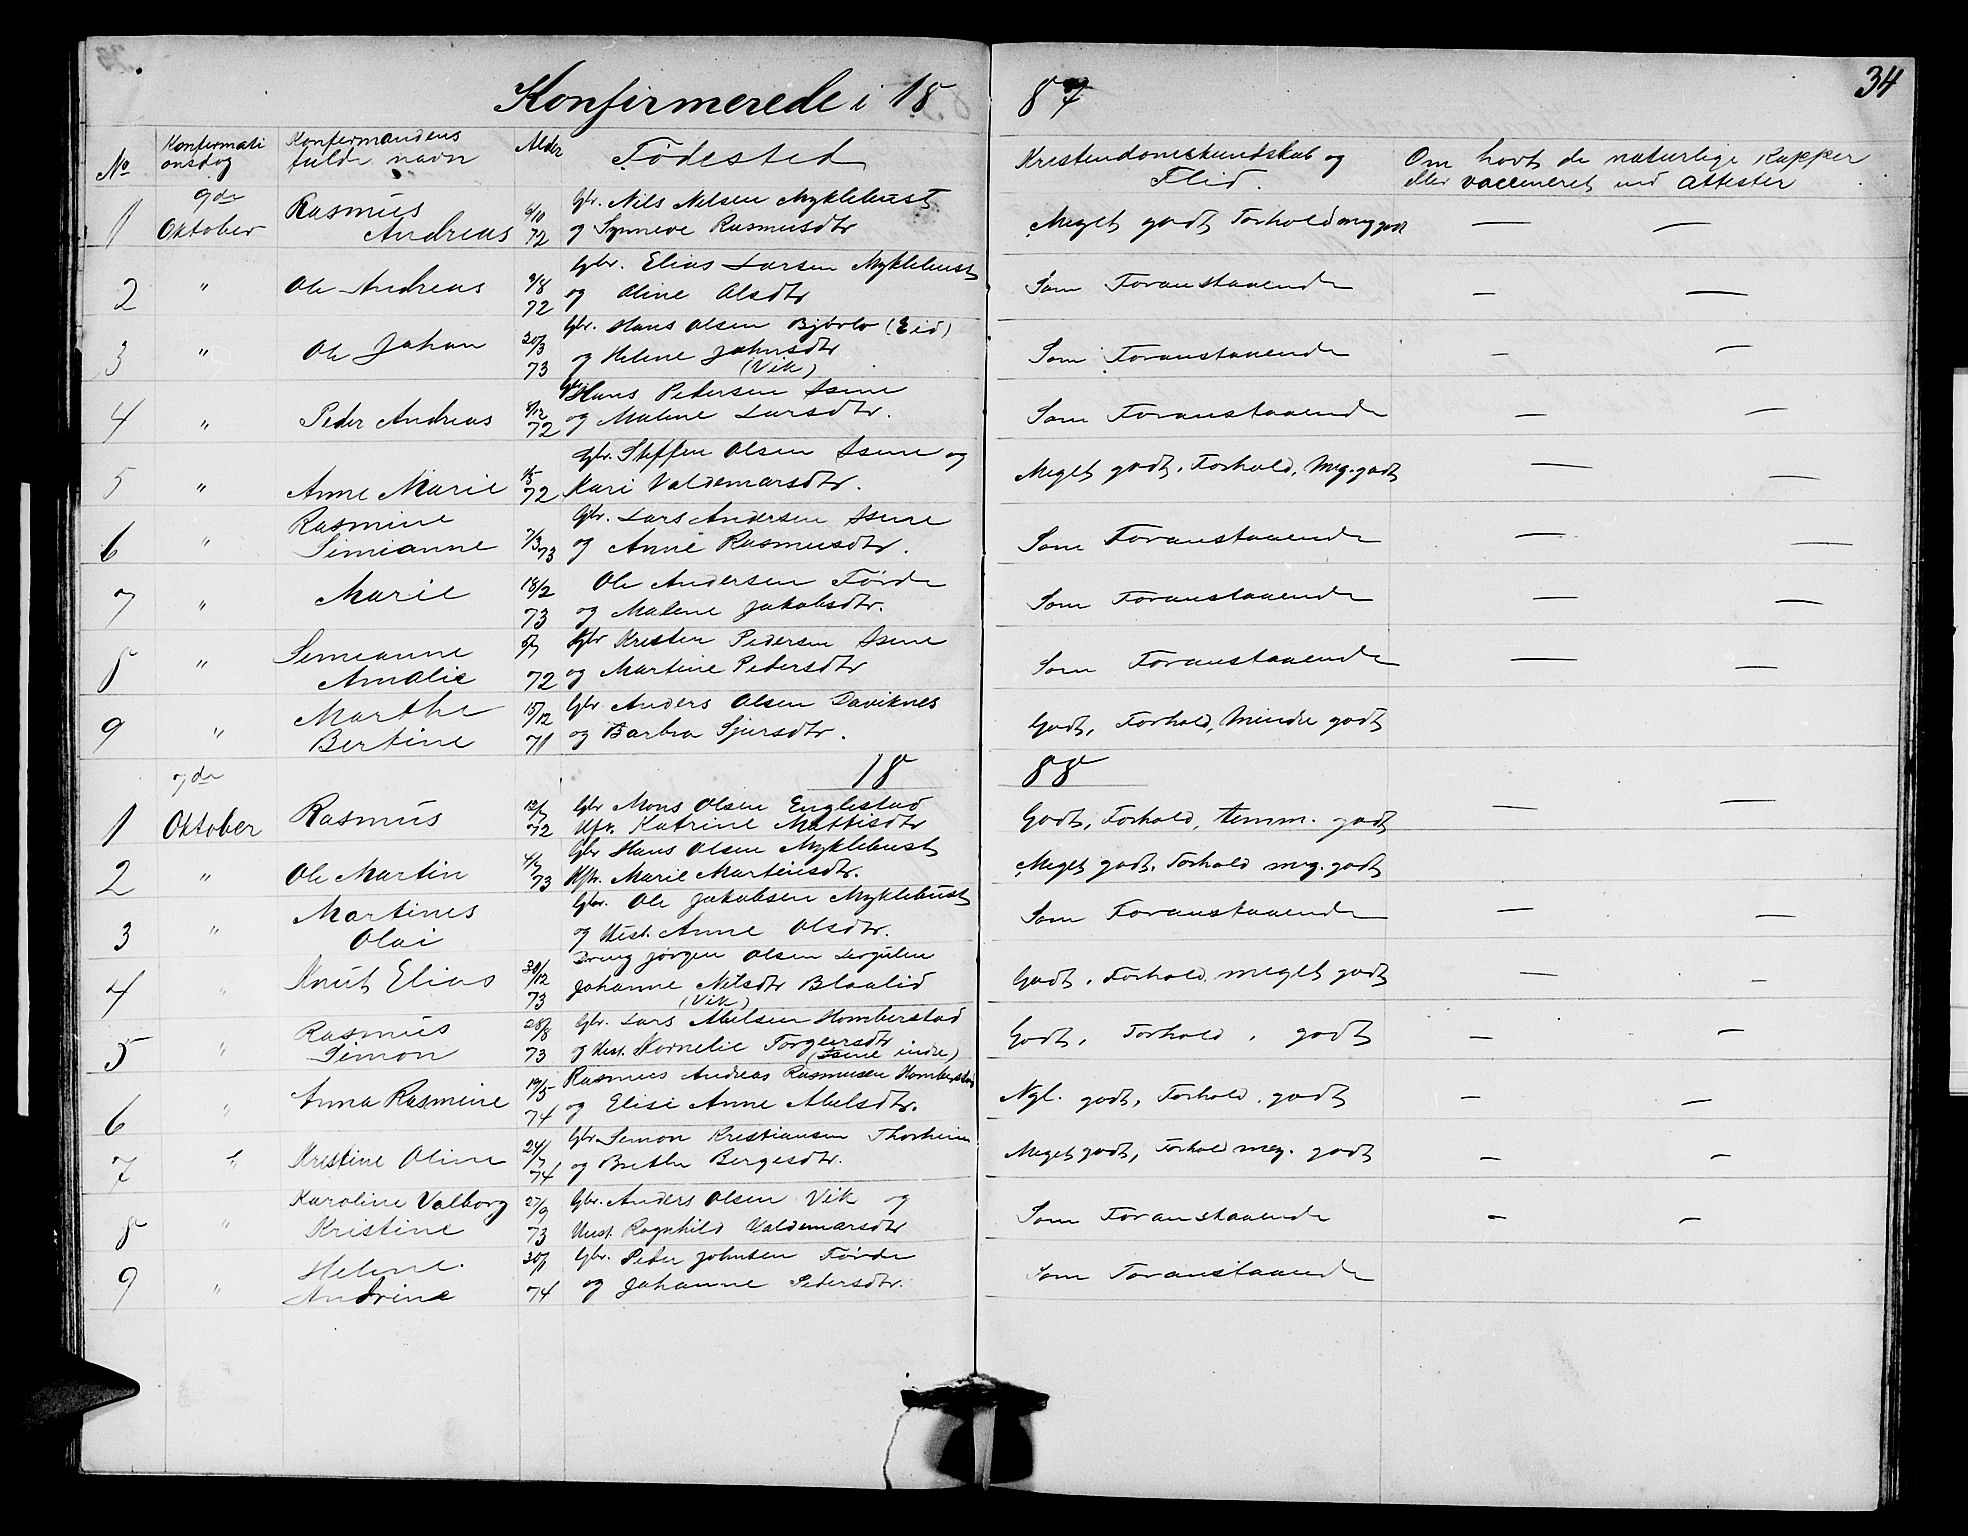 34
Konfirmerede i 18 87
No Konfirmationsdag Konfirmandens fulde navn Alder Fødested Kristendomskundskab og Flid. Om havt de naturlige Kopper eller vaccineret med Attester
1 9de Oktober Rasmus Andreas 6/10 72 Gbr. Nils Nelsen Myklebust og Synneve Rasmusdtr Meget godt Forhold meg godt — —
2 " Ole Andreas 9/8 72 Gbr. Elias Larsen Myklebust og Oline Olsdtr Som Foranstaaende — —
3 " Ole Johan 20/3 73 Gbr. Hans Olsen Bjørlo (Eid) og Helene Johnsdtr (Vik) Som Foranstaaende — —
4 " Peder Andreas 8/12 72 Gbr Hans Pedersen Isene og Malene Larsdtr. Som Foranstaaende — —
5 " Anne Marie 72 Gbr. Steffen Olsen Isene og Kari Valdemarsdtr. Meget godt, Forhold, Meg. godt — —
6 " Rasmine Simianne 7/3 73 Gbr. Lars Andersen Isene og Anne Rasmusdtr. Som Foranstaaende — —
7 " Marie 18/2 73 Ole Andersen Førde og Malene Jakobsdtr. Som Foranstaaende — —
8 " Simeanne Amalie 72 Gbr Kristen Pedersen Isene og Martine Pedersdtr Som Foranstaaende — —
9 " Marthe Bertine 15/12 71 Gbr Anders Olsen Daviknes og Barbra Sjursdtr. Godt, Forhold, Mindre godt
18 88
1 7de Oktober Rasmus 12/7 72 Gbr Mons Olsen Englestad Hfr. Katrine Mattisdtr Godt, Forhold, temm. godt — —
2 " Ole Martin 4/7 73 Gbr Hans Olsen Myklebust Hfr. Marie Martinsdtr. Meget godt. Forhold meg. godt
3 " Martines Olai Gbr. Ole Jakobsen Myklebust og Hust. Anne Olsdtr. Som Foranstaaende — —
4 " Knut Elias 30/12 73 Dreng Jørgen Olsen Johanne Nilsdtr Blaalid (Vik) Godt, Forhold meget godt — —
5 " Rasmus Simon 28/8 73 Gbr. Lars Abelsen Homberstad og Hust. Kornelie Torgersdtr (Isene indre) Godt, Forhold, godt — —
6 " Anna Rasmine 19/5 74 Rasmus Andreas Rasmusen Homberstad og Elisi Anne Abelsdtr. Ngl. godt, Forhold. godt — —
7 " Kristine Oline 24/7 74 Gbr. Simon Kristiansen Thorheim og Brethe Bergesdtr. Meget godt, Forhold meg. godt — —
8 " Karoline Valborg Kristine 27/9 73 Gbr. Anders Olsen Vik og Hust. Ragnhild Valdemarsdtr Som Foranstaaende — —
9 " Helene Andrine 30/1 74 Gbr. Peder Johnsen Førde og Johanne Pedersdtr. Som Foranstaaende